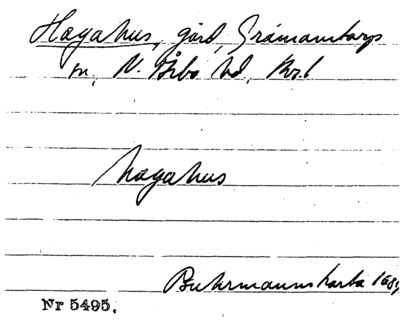 Hagahus, gård, Gråmanstorps
sn, N. Åsbo hd, Krl
Hagahus
Buhrmanns karta 1684
Nr 5495.